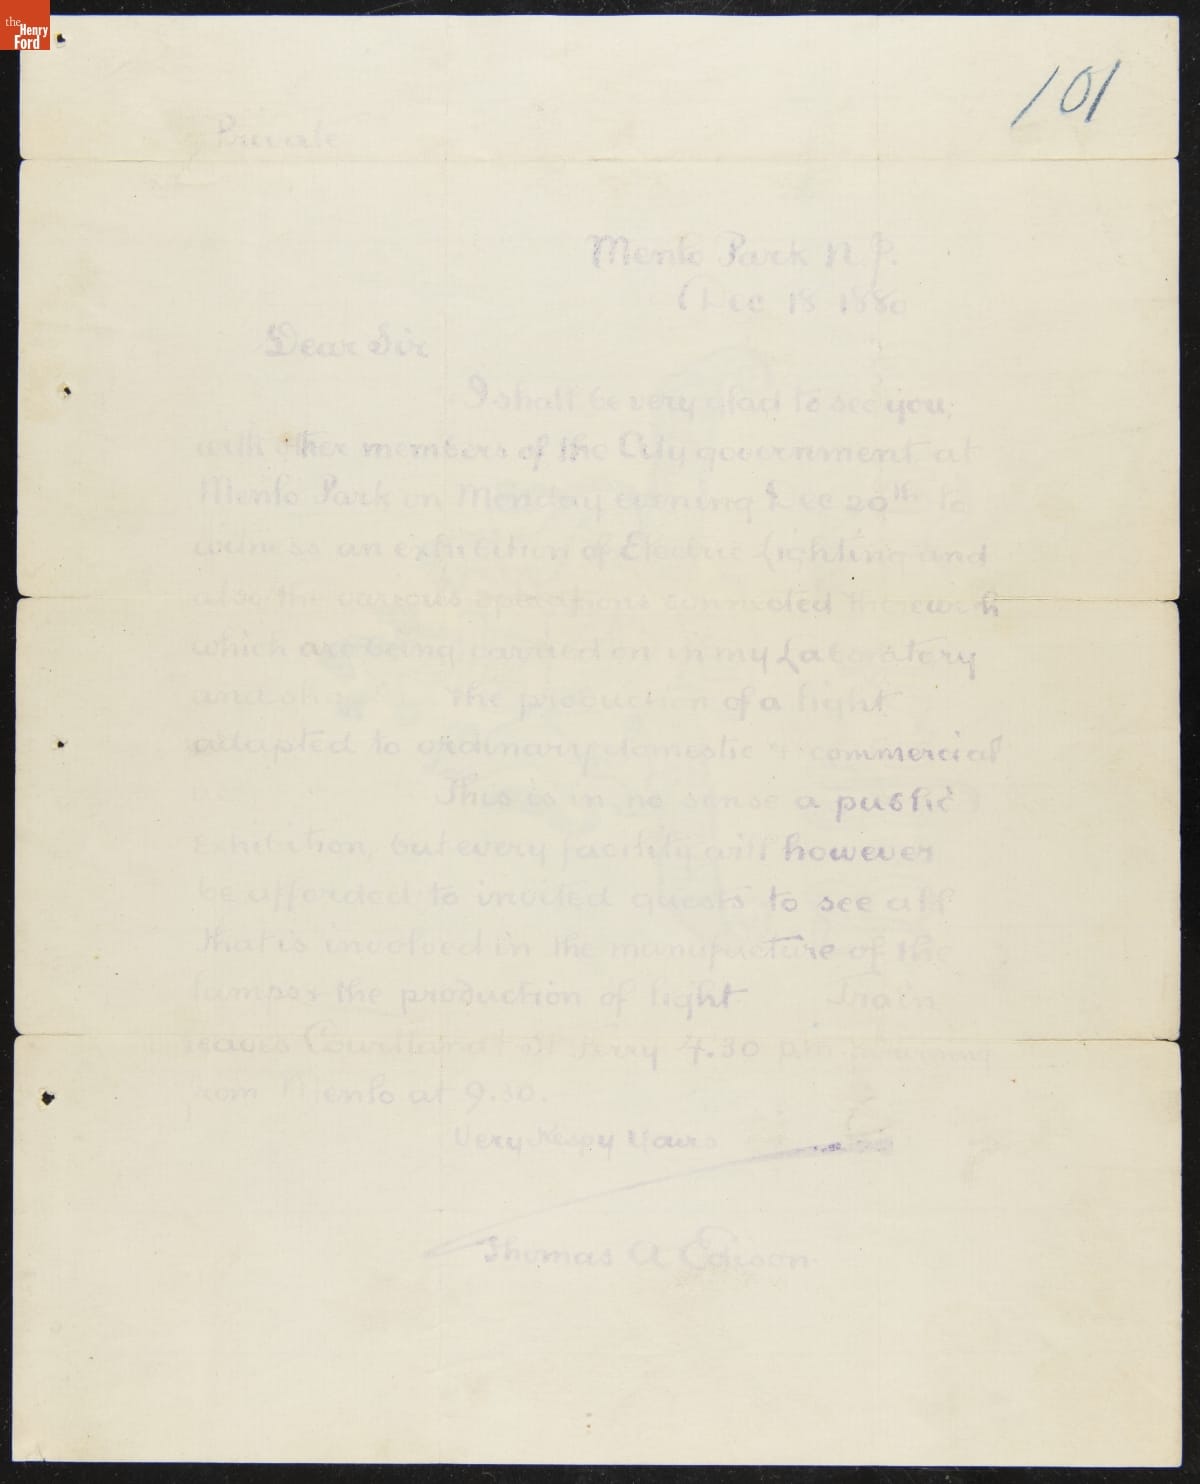 the
Henry
Ford
101
Private
Menlo Park N.J.
Dec 18 1880
Dear Sir
I shall be very glad to see you,
with other members of the City government at
Menlo Park on Monday evening Dec 20th to
witness an exhibition of Electric Lighting and
also the various operations connected therewith
which are being carried on in my Laboratory
and the production of a light
adapted to ordinary domestic + commercial
This is in no sense a public
exhibition, but every facility will however
be afforded to invited guests to see all
that is involved in the manufacture of the
lamps & the production of light Train
leaves Courtland St Ferry 4.30 p.m. returning
from Menlo at 9.30.
Very Respy Yours
Thomas A Edison